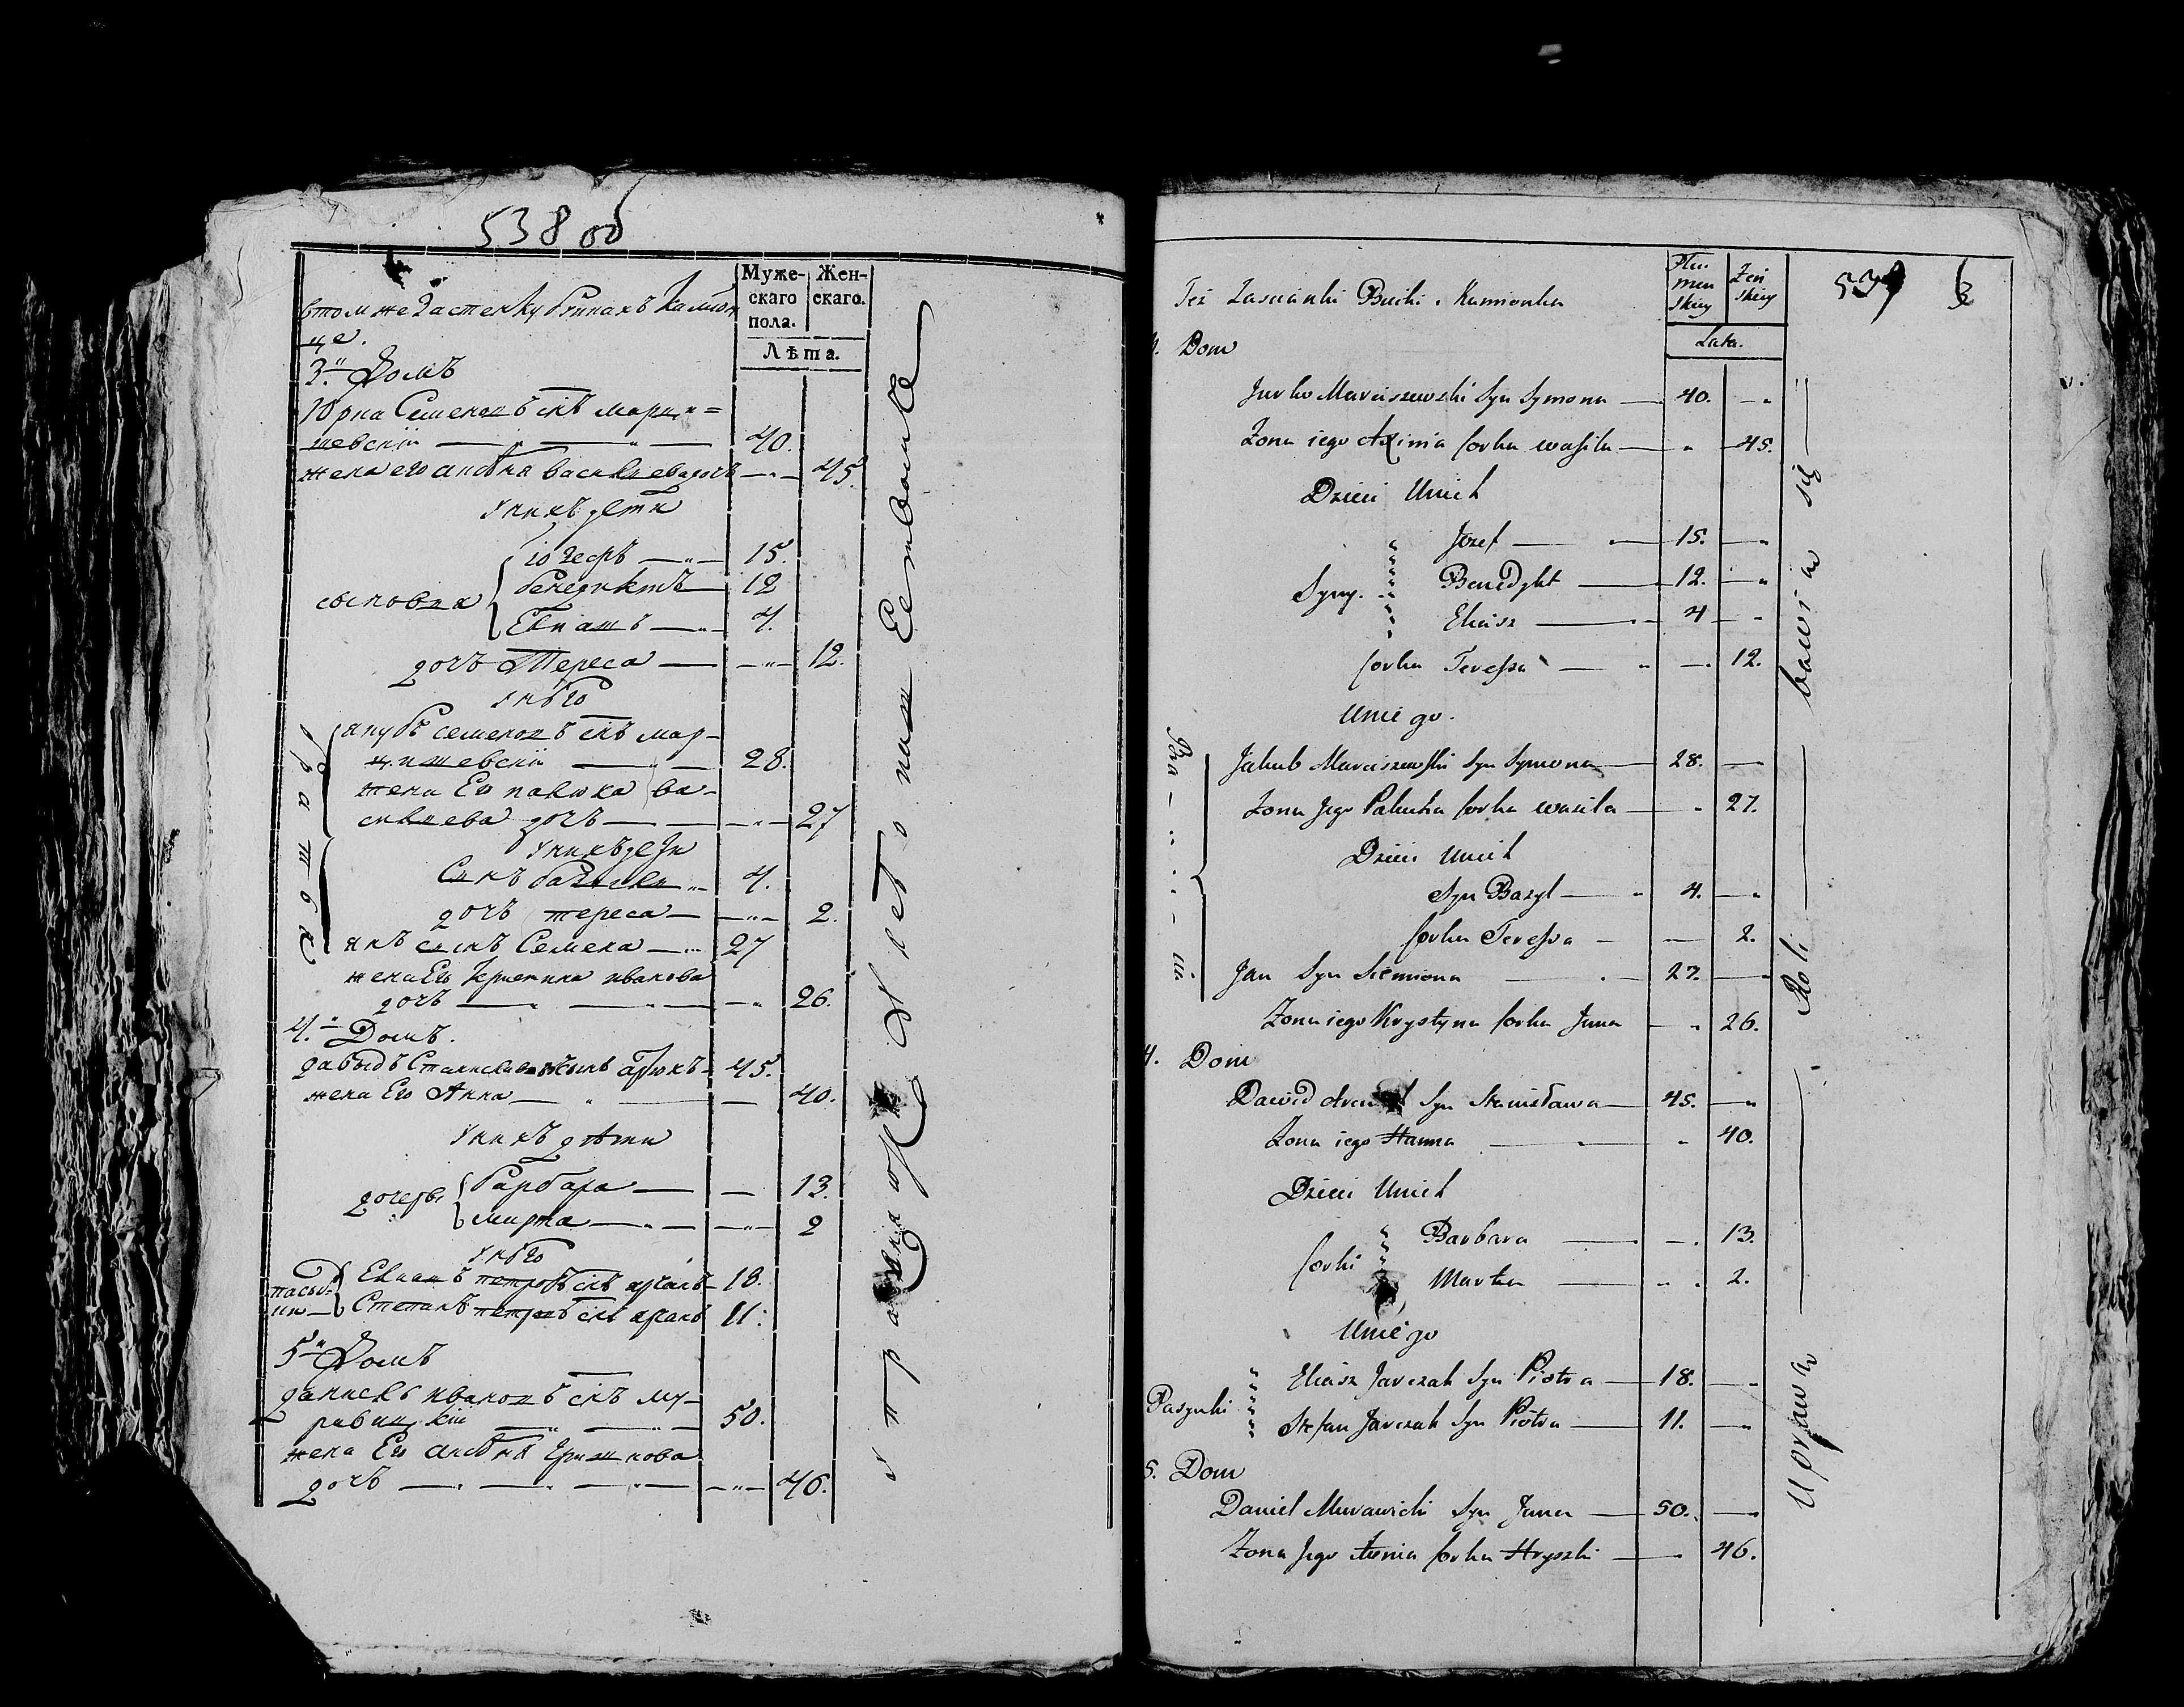 538 об
Муже-
скаго
пола.
Жен-
скаго.
Лѣта.
втомже застенку
це.
3.й Домъ
Юрка Семеновъ снъ марци=
шевскiй 40.
жена его анюта василева дочъ 45.
У них дети
сыновя
iозефъ 15.
бенедиктъ 12
Елиашъ 4.
дочъ Тереса 12.
У него
братья
якубъ семеновъ снъ мар-
цишевскiй 28.
жена Его палюха ва-
силева дочъ 27
У них дети
Сынъ базыли 4.
дочъ тереса 2.
янъ сынъ Семена 27
жена Его кристина иванова
дочъ 26.
4.й Домъ.
давыдъ Станиславовъ сынъ 45.
жена Его Анна 40.
У них дети
дочеры
барбара 13.
марта 2
У него
пасын-
ки
Елиашъ петровъ снъ 18.
Степанъ петровъ снъ 11.
5й Домъ
данило ивановъ снъ му-
равицкiй 50.
жена Его гришкова
дочъ 46.
539
Też Zascianki Kamionka
Zen
skiey
Lata.
3. Dom
Jurko Marciszewski Syn Symona 40.
Zona iego Axinia corka wasila 45.
Dzieci Unich
Syny.
Jozef 15.
Benedykt 12.
Eliasz 4
corka Teressa 12.
Uniego.
Bra-cia
Jakub Marciszewski Syn Symona 28.
Zona Jego Palucha corka wasila 27.
Dzieci Unich
Syn Bazyl 4.
corka Teressa 2.
Jan Syn Siemiona 27.
Zona iego Krystyna corka Jana 26.
4. Dom
Dawid Syn Stanisława 45.
Zona iego Hanna 40.
Dzieci Unich
corki
Barbara 13.
Marta 2.
Uniego
Pasynki
Eliasz Jarczak Syn Piotra 18.
Stefan Jarczak Syn Piotra 11.
5. Dom
Daniel Murawicki Syn Jana 50.
Zona Jego corka Hryszki 46.
Uprawą Roli bawią się